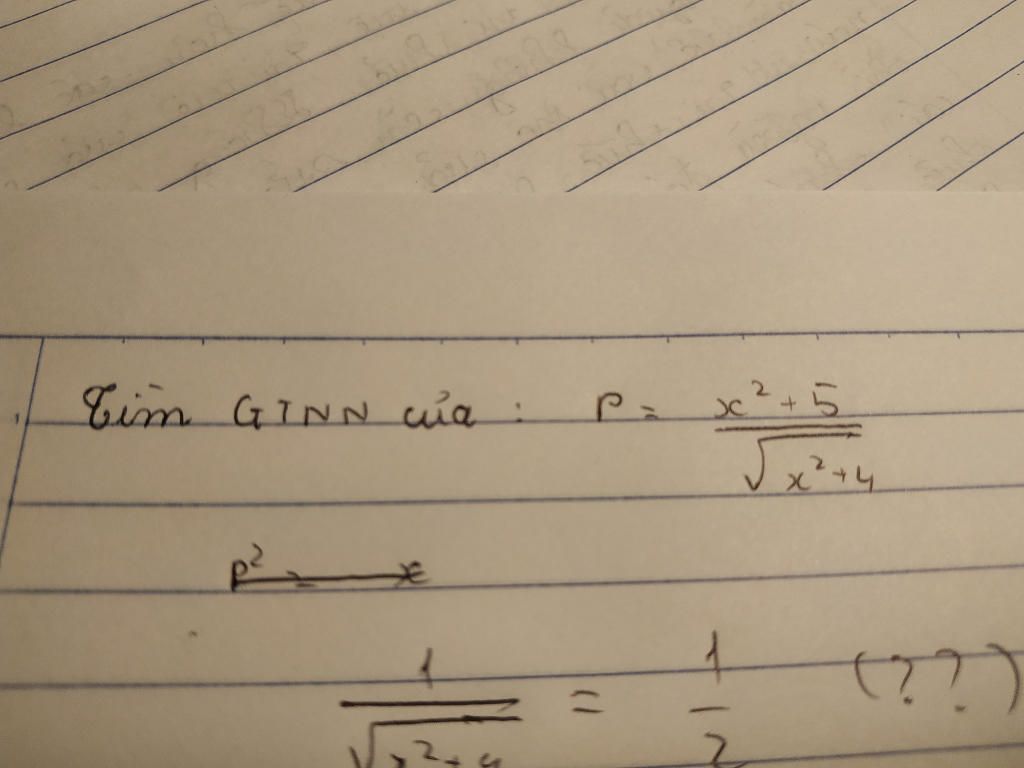 Tìm GTNN của : P = \frac{x^2+5}{\sqrt{x^2+4}}
P^2 = x
\frac{1}{\sqrt{x^2+4}} = \frac{1}{2} (??)